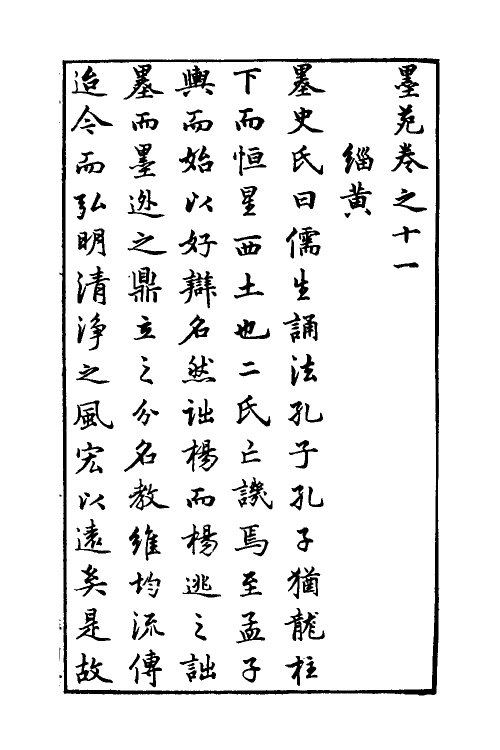 墨苑卷之十一
緇黄
墨史氏曰儒生誦法孔子孔子猶龍柱
下而恒星西土也二氏亡譏焉至孟子
輿而始以好辯名然詘楊而楊逃之詘
墨而墨逊之鼎立之分名教維均流傳
迨今而弘明清淨之風宏以遠矣是故